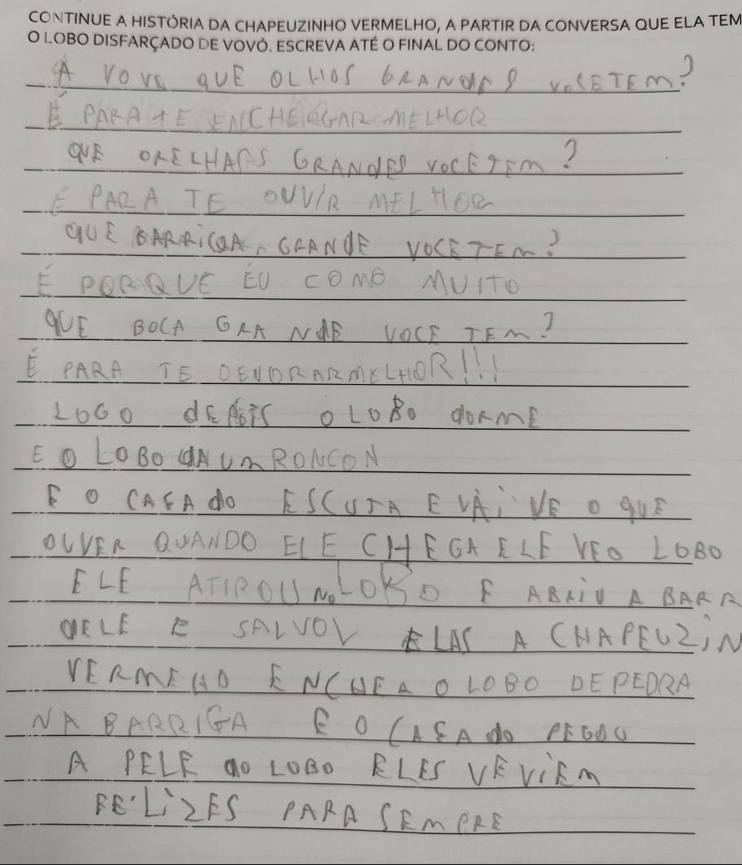 CONTINUE A HISTÓRIA DA CHAPEUZINHO VERMELHO, A PARTIR DA CONVERSA QUE ELA TEM
O LOBO DISFARÇADO DE VOVÓ. ESCREVA ATÉ O FINAL DO CONTO:
A VOVO QUE OLHOS GRANDES VOCETEM?
É PARA TE ENCHERGAR MELHOR
QUE ORELHAS GRANDES VOCETEM?
É PARA TE OUVIR MELHOR
QUE BARRIGA GRANDE VOCETEM?
É PORQUE EU COMO MUITO
QUE BOCA GRANDE VOCE TEM?
É PARA TE DEVORAR MELHOR!!!
LOGO DEPOIS O LOBO DORME
E O LOBO DA UM RONCON
E O CASADO ESCUTA E VAI VE O QUE
OUVER QUANDO ELE CHEGA ELE VE O LOBO
ELE ATIROU NO LOBO E ABRIU A BARR
DELE E SALVOV ELAS A CHAPEUZIN
VERMELHO ENCHEA O LOBO DE PEDRA
NA BARRIGA E O CASADO PEGOU
A PELE DO LOBO ELES VEVIEM
FELIZES PARA SEMPRE